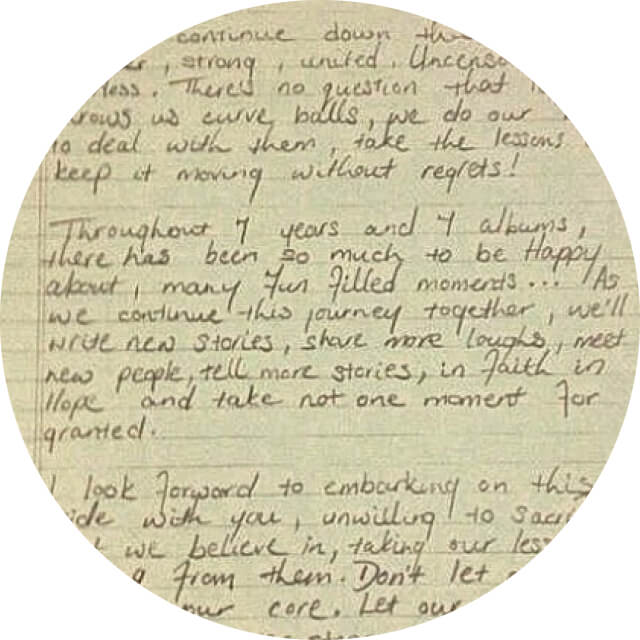 continue down
, strong , united.
There's no question that
us curve balls, we do our
to deal with them, take the lessons
keep it moving without regrets!
Throughout 7 years and 7 albums,
there has been so much to be Happy
about, many fun filled moments... As
we continue this journey together, we'll
write new stories, share more laughs, meet
new people, tell more stories, in faith in
Hope and take not one moment for
granted.
I look forward to embarking on this
with you, unwilling to
we believe in, taking our
from them. Don't let
our core. Let our